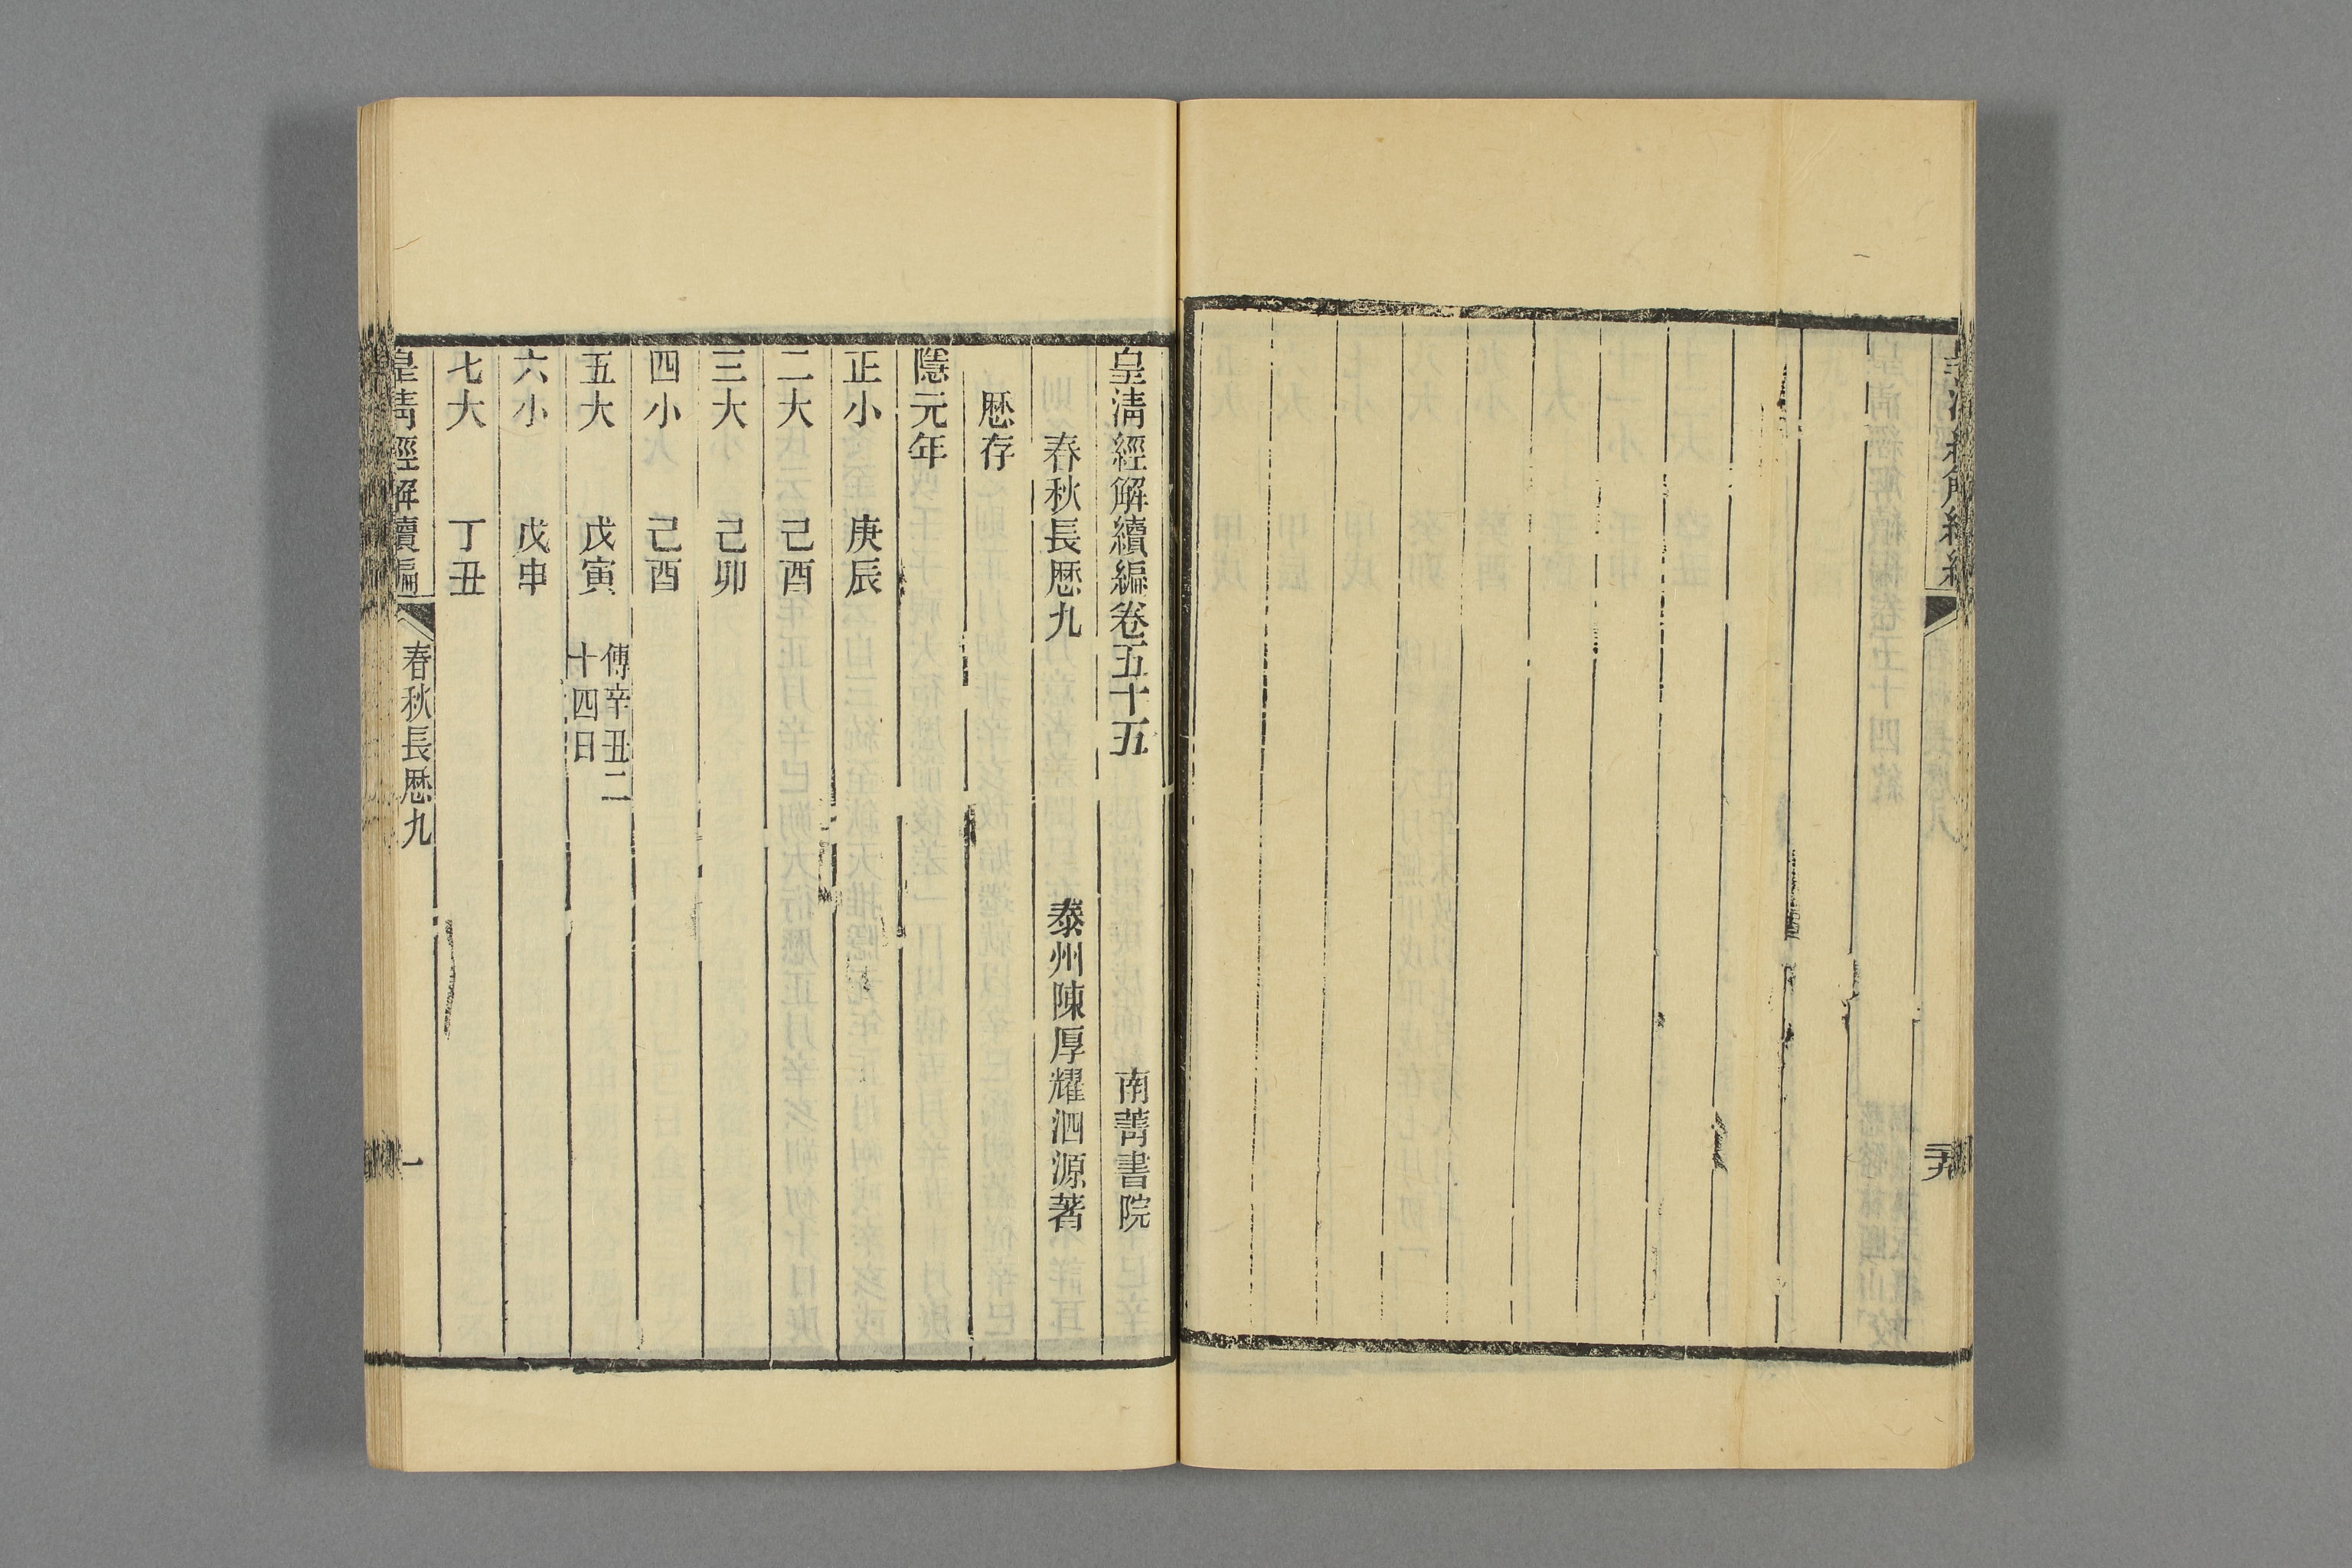 皇清經解續編卷五十五 南菁書院
春秋長厯九 泰州陳厚耀泗源著
厯存
隱元年
正小 庚辰
二大 己酉
三大 己卯
四小 己酉
五大 戊寅 傳辛丑二
十四日
六小 戊申
七大 丁丑
皇清經解續編 春秋長厯九 一